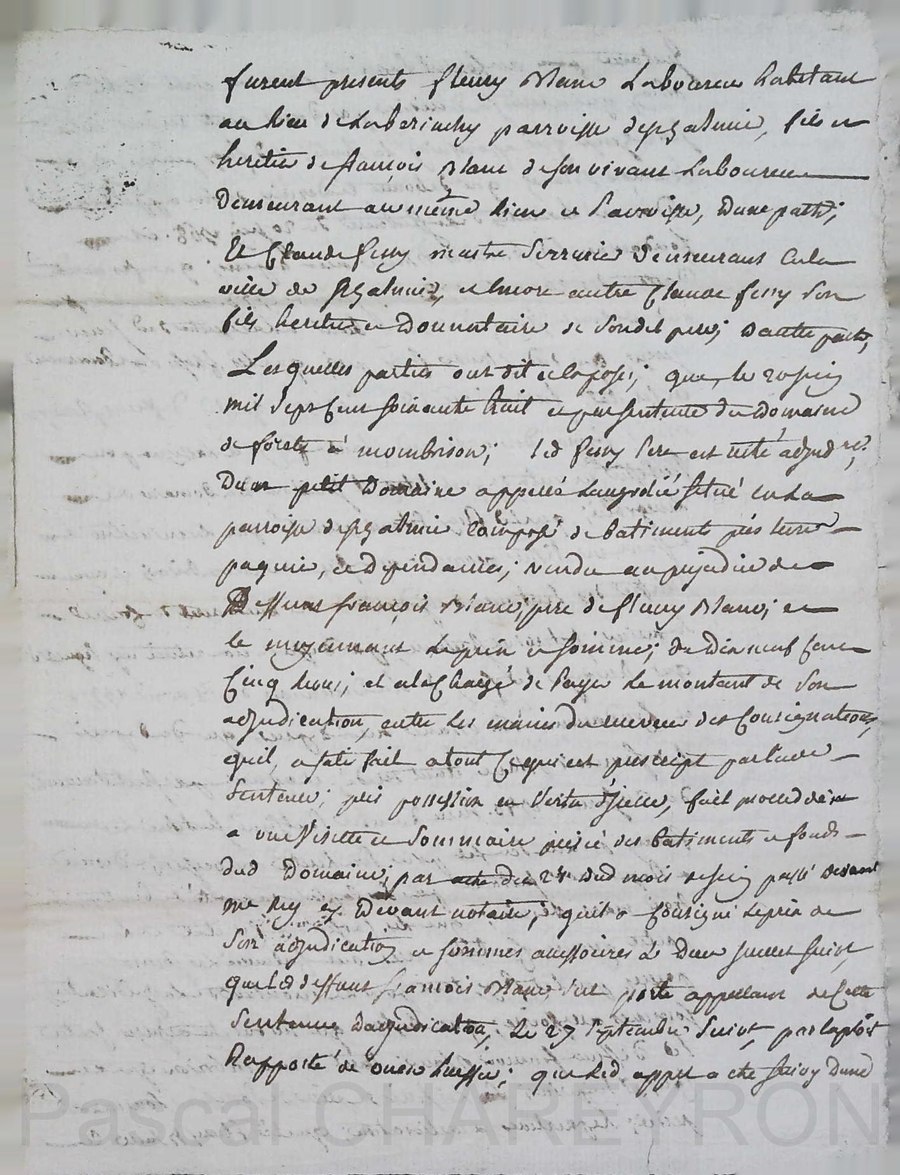 furent presents fleury Blanc Laboureur habitant
au lieu de Laberiachy parroisse de st galmier, fils et
heritier de françois Blanc de son vivant Laboureur
Demeurant au même lieu et Parroisse, Dune part;
Et Claude fessy maitre Serrurier Demeurant en la
ville de st galmier, et encore autre Claude fessy son
fils heritier et Donnataire de sondit pere; Dautre part,
Lesquelles parties ont dit et exposé; que le 20 juin
mil sept Cent soixante huit et par sentence du Domaine
de forets à monbrison; led fessy Pere est resté adjud.re
Dun petit Domaine appellé situé en la
parroisse de st galmier Composé de batiments prés terres
paquier, et dependances; vendu au prejudice de
Deffunt françois Blanc; pere de fleury Blanc; et
le moyennant le prix et somme; de Dix neuf Cent
Cinq livres; et a la Charge de Payer le montant de son
adjudication, entre les mains du receveur des Consignations,
quil, a satisfait a tout Ce qui est prescript par lade
Sentence; pris possession en vertu d'jcelle, fait proceddér
a une Visitte et Sommaire prisée des batiments et fonds
dud Domaine, par acte du dud mois de juin passé devant
me Rey et Devant notaire; quil a Consigné le prix de
Son adjudication et sommes accessoires le Deux juillet suivt,
que led deffunt françois Blanc sest porté appellant de Cette
Sentence Dadjudication, le 27 septembre Suivt, par exploit
Rapporté de huissier; que led, appel a eté suivy Dune
Pascal CHAREYRON